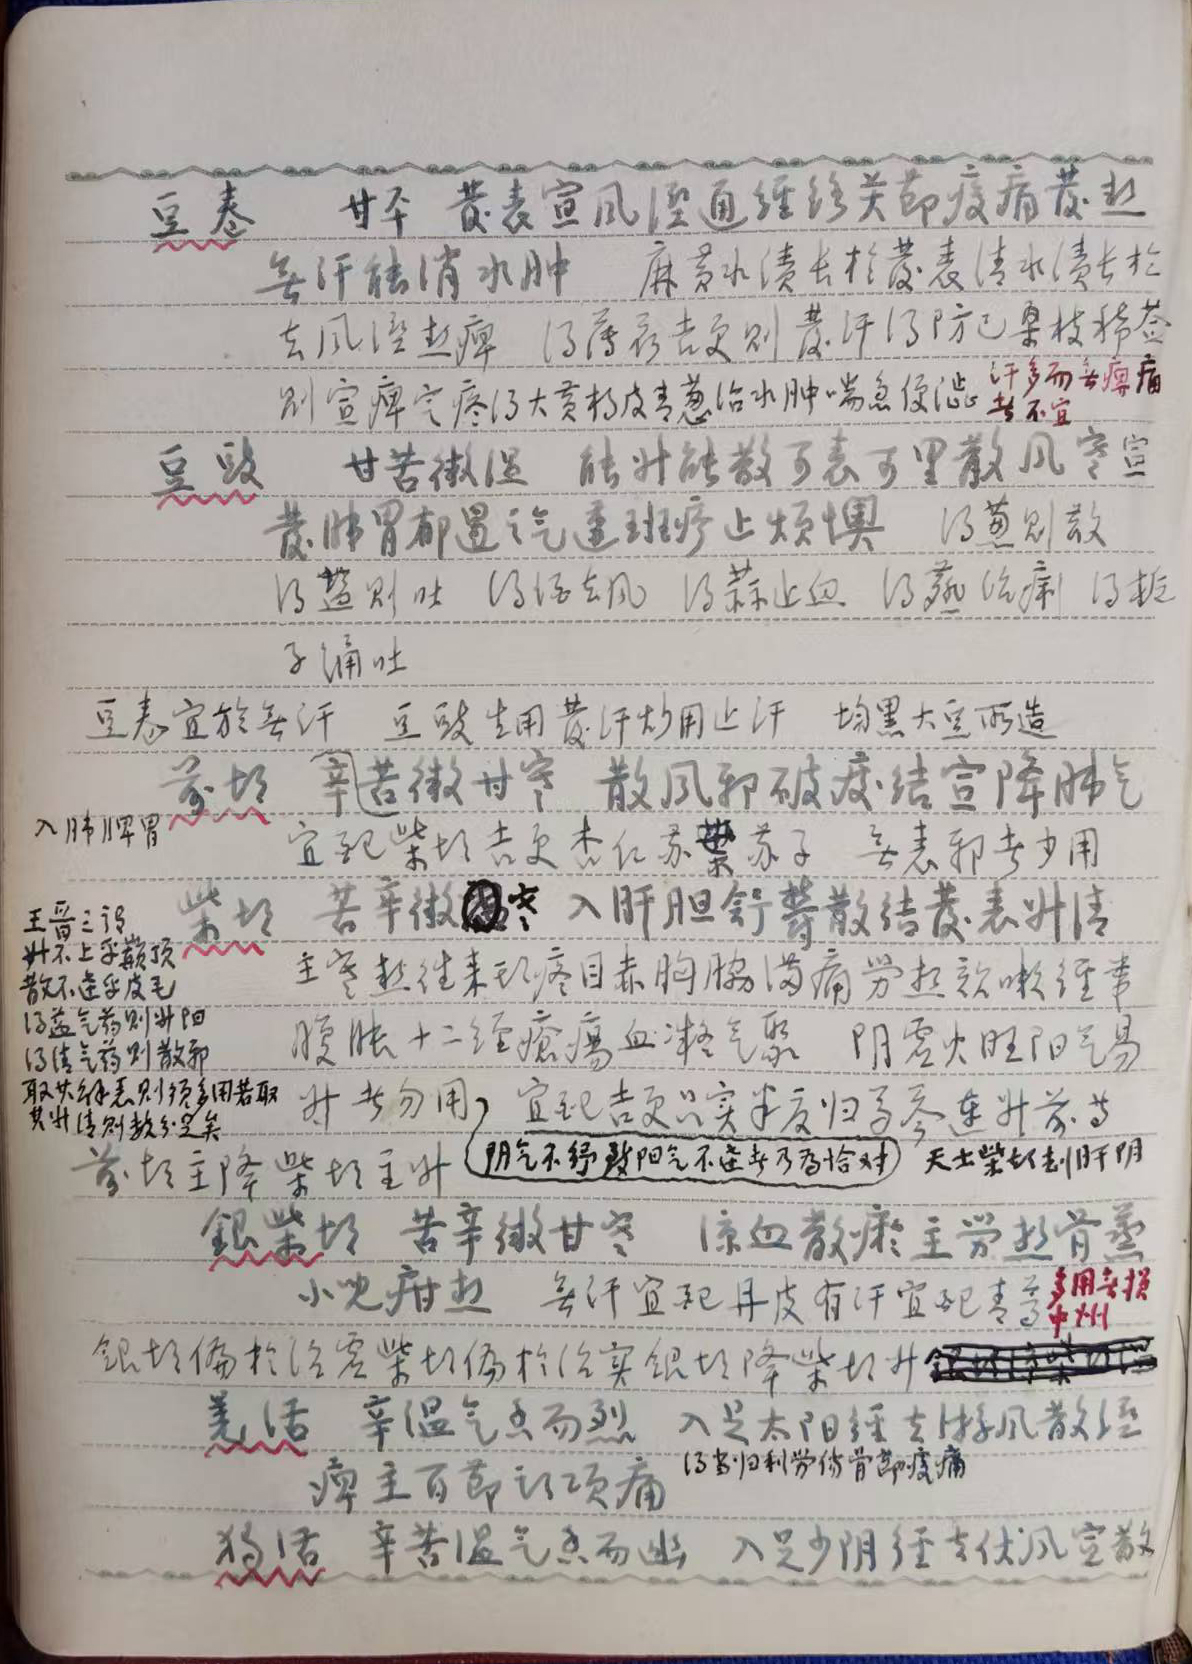 豆卷 甘平 發表宣风溼通經络关節痠痛發热
無汗能消水肿 麻黄水渍长於發表清水渍长於
去风溼热痺 得薄荷吉更则發汗得防己桑枝稀莶
则宣痺定疼得大黄桂皮青葱治水肿喘急便澁 汗多而無痺痛
者不宜
豆豉 甘苦微温 能升能散可表可里散风寒宣
發肺胃郁遏之气透斑疹止烦懊 得葱则散
得盐则吐 得酒去风 得蒜止血 得薤治痢 得栀
子涌吐
豆卷宜於無汗 豆豉生用發汗炒用止汗 均黑大豆所造
前胡 辛苦微甘寒 散风邪破痰结宣降肺气
入肺脾胃
宜配柴胡吉更杏仁苏葉苏子 無表邪者少用
柴胡 苦辛微寒 入肝胆舒鬱散结發表升清
王晋三谓
升不上乎巅顶
散不达乎皮毛
得益气药则升阳
得清气药则散邪
取其解表则须多用若取
其升清则数分足矣
主寒热往来头疼目赤胸脇满痛劳热欬嗽经事
腹胀十二经瘡瘍血凝气聚 阴虚火旺阳气易
升者勿用 宜配吉更只实半夏归子芩连升前芍
前胡主降柴胡主升 阴气不纾致阳气不达者乃为恰对 天士柴胡刦肝阴
銀柴胡 苦辛微甘寒 凉血散瘀主劳热骨蒸
小儿疳热 無汗宜配丹皮有汗宜配青蒿 多用無损
中州
銀胡偏於治虚柴胡偏於治实銀胡降柴胡升
羌活 辛温气香而烈 入足太阳经去游风散溼
痺主百節头项痛 得当归利劳伤骨節痠痛
独活 辛苦温气香而幽 入足少阴经去伏风宣散